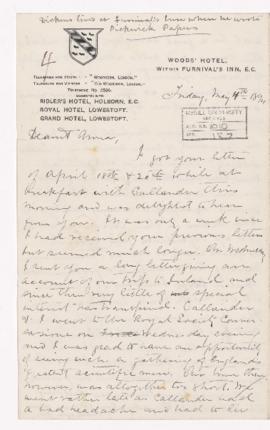 Dickens lived at Furnival's Inn when he wrote
Pickwick Papers
4
WOODS' HOTEL,
WITHIN FURNIVAL'S INN, E.C.
RIDLER'S HOTEL, HOLBORN, E.C.
ROYAL HOTEL, LOWESTOFT.
GRAND HOTEL, LOWESTOFT.
Friday, May 4th 1894
McGILL UNIVERSITY
Dearest Anna,
I got your letter
of April 18th & 20th while at
breakfast with Callendar this
morning and was delighted to hear
from you. It was only a week since
I had received your previous letter
but seemed much longer. On Wednesday
I sent you a long letter giving an
account of our trip to Ireland and
since then very little of special
interest has transpired. Callendar
& I went to the Royal Society Conver-
sazione on Wednesday evening
and I was glad to have an opportunity
of seeing such a gathering of England's
greatest scientific men. Our time there
however, was altogether too short. We
went rather late as Callendar had
a bad headache and had to lie